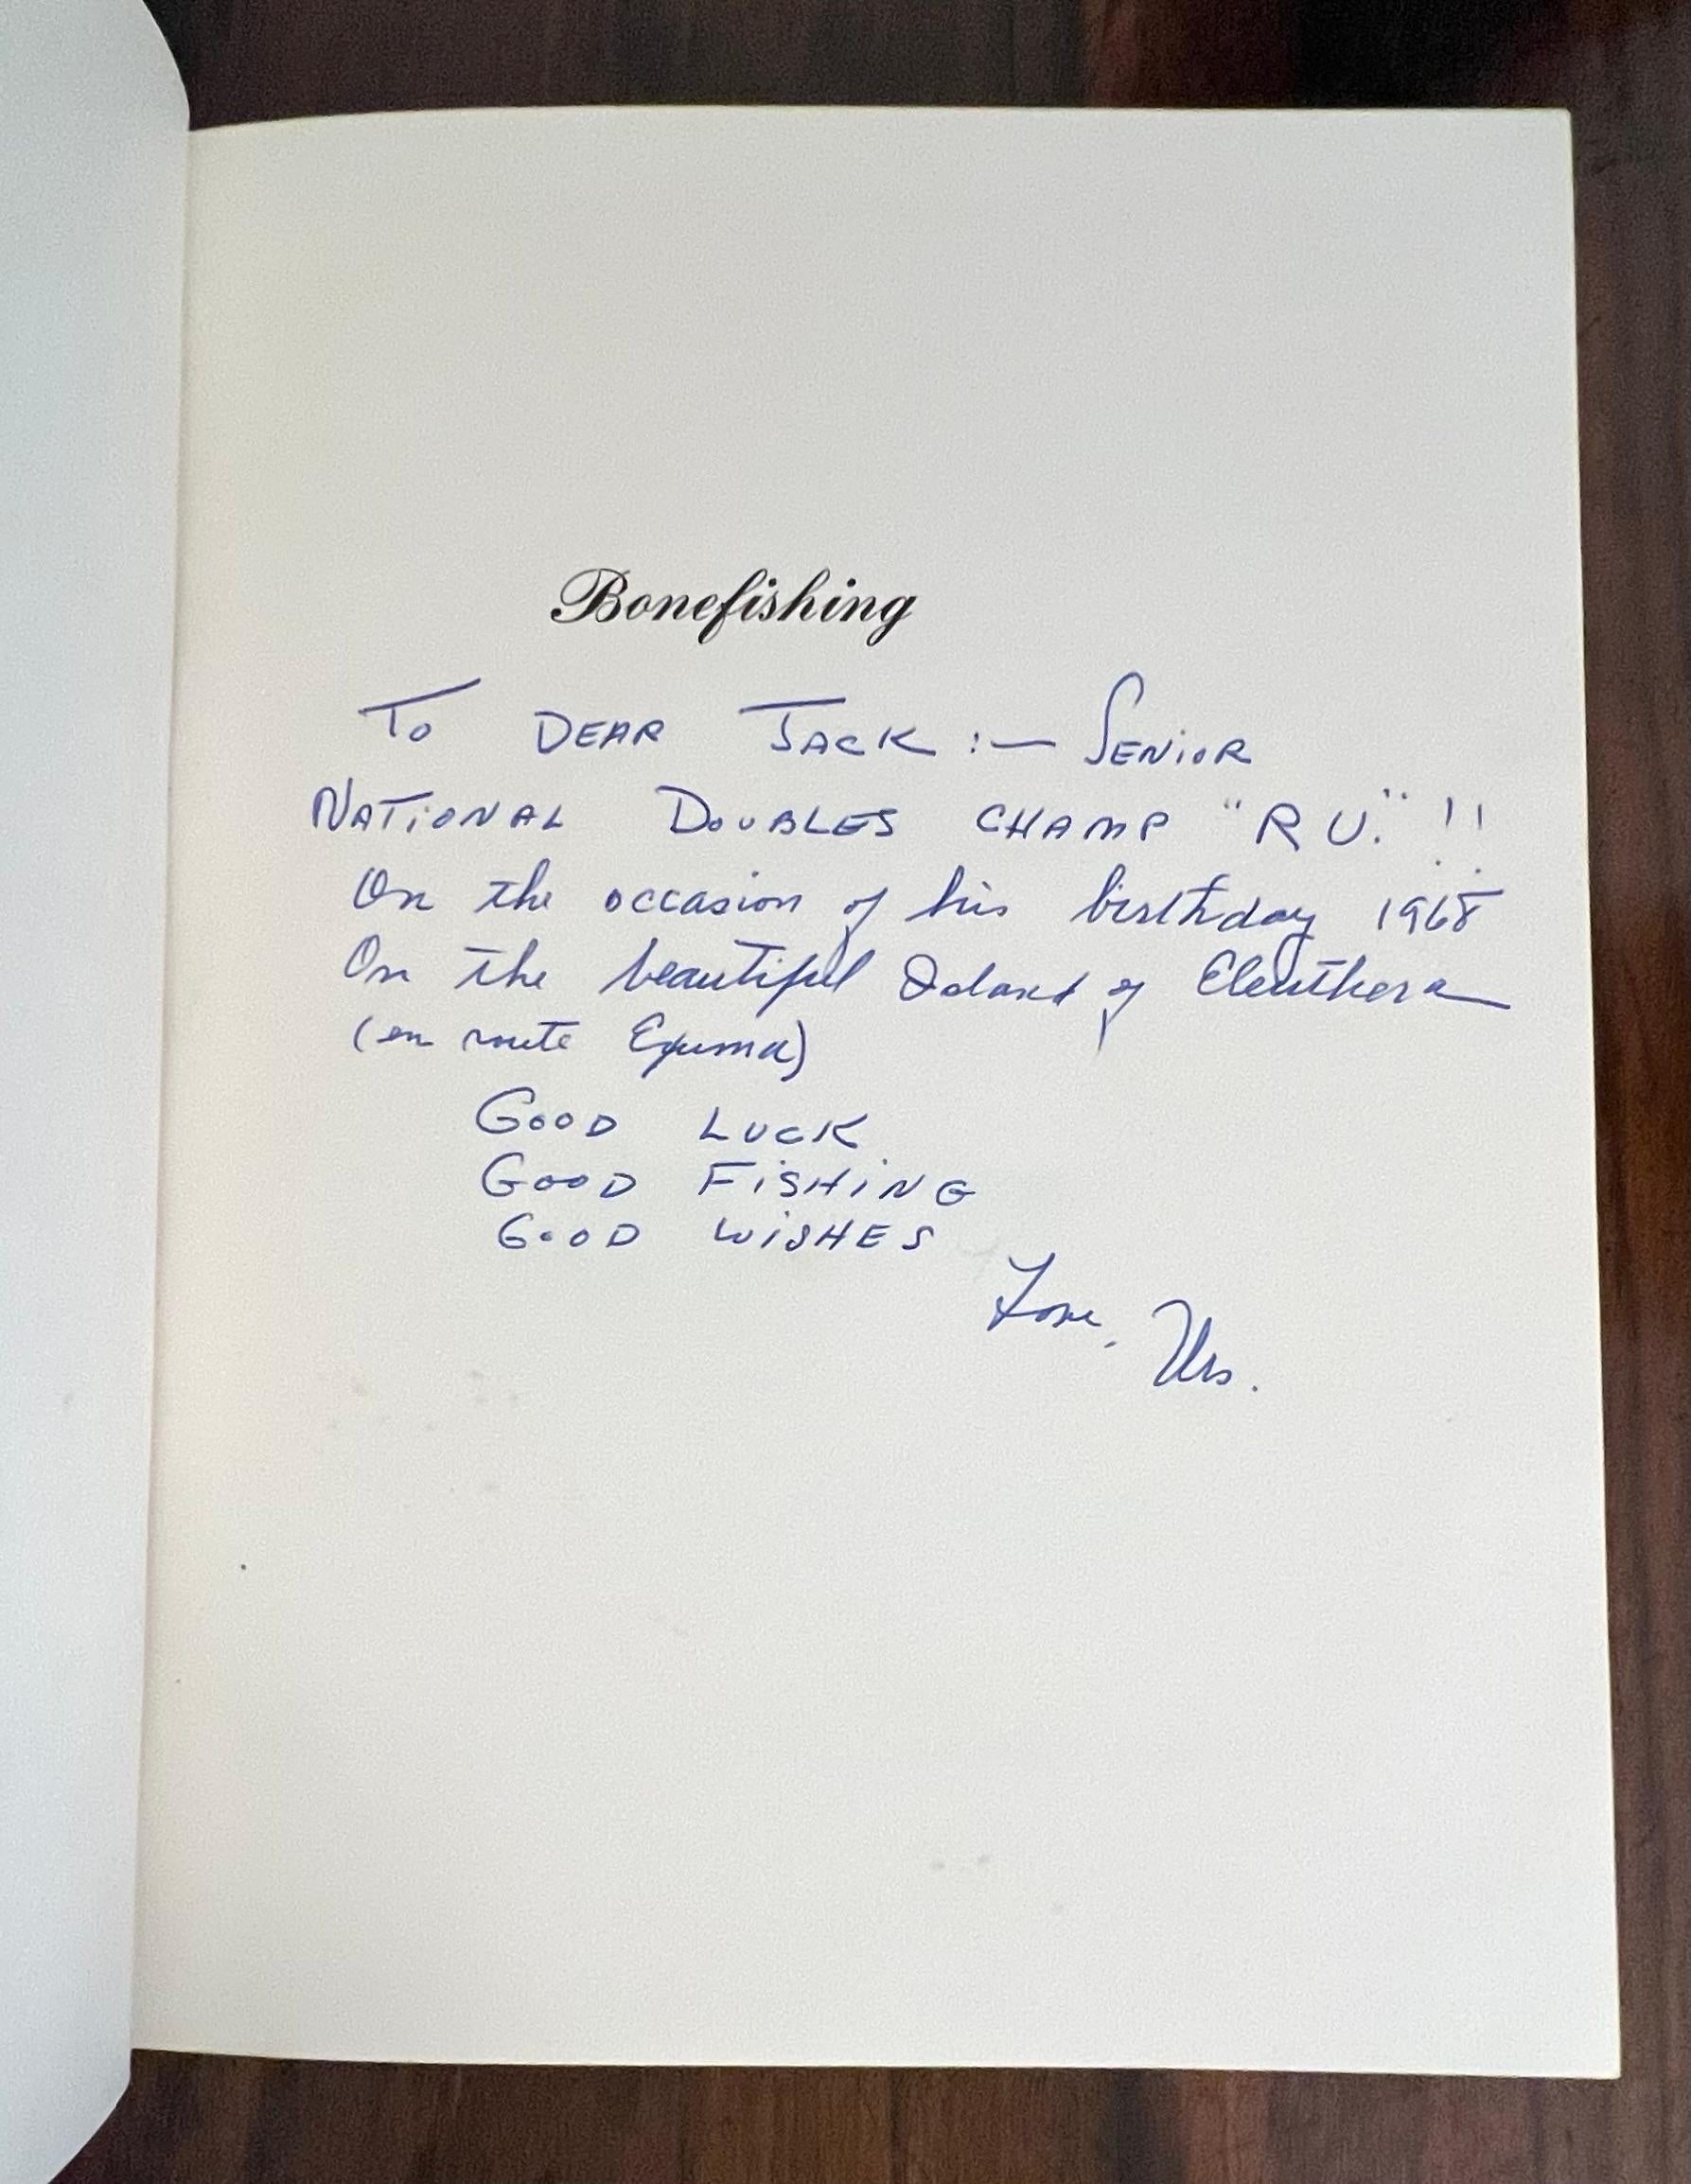 Bonefishing
To DEAR JACK :— SENiOR
NATiONAL DOUBLES CHAMP "R U." !!
On the occasion of his birthday 1968
On the beautiful Island of Eleuthera
(en route Exuma)
GOOD LUCK
GOOD FiSHiNG
GOOD WiSHES
Love, Urs.